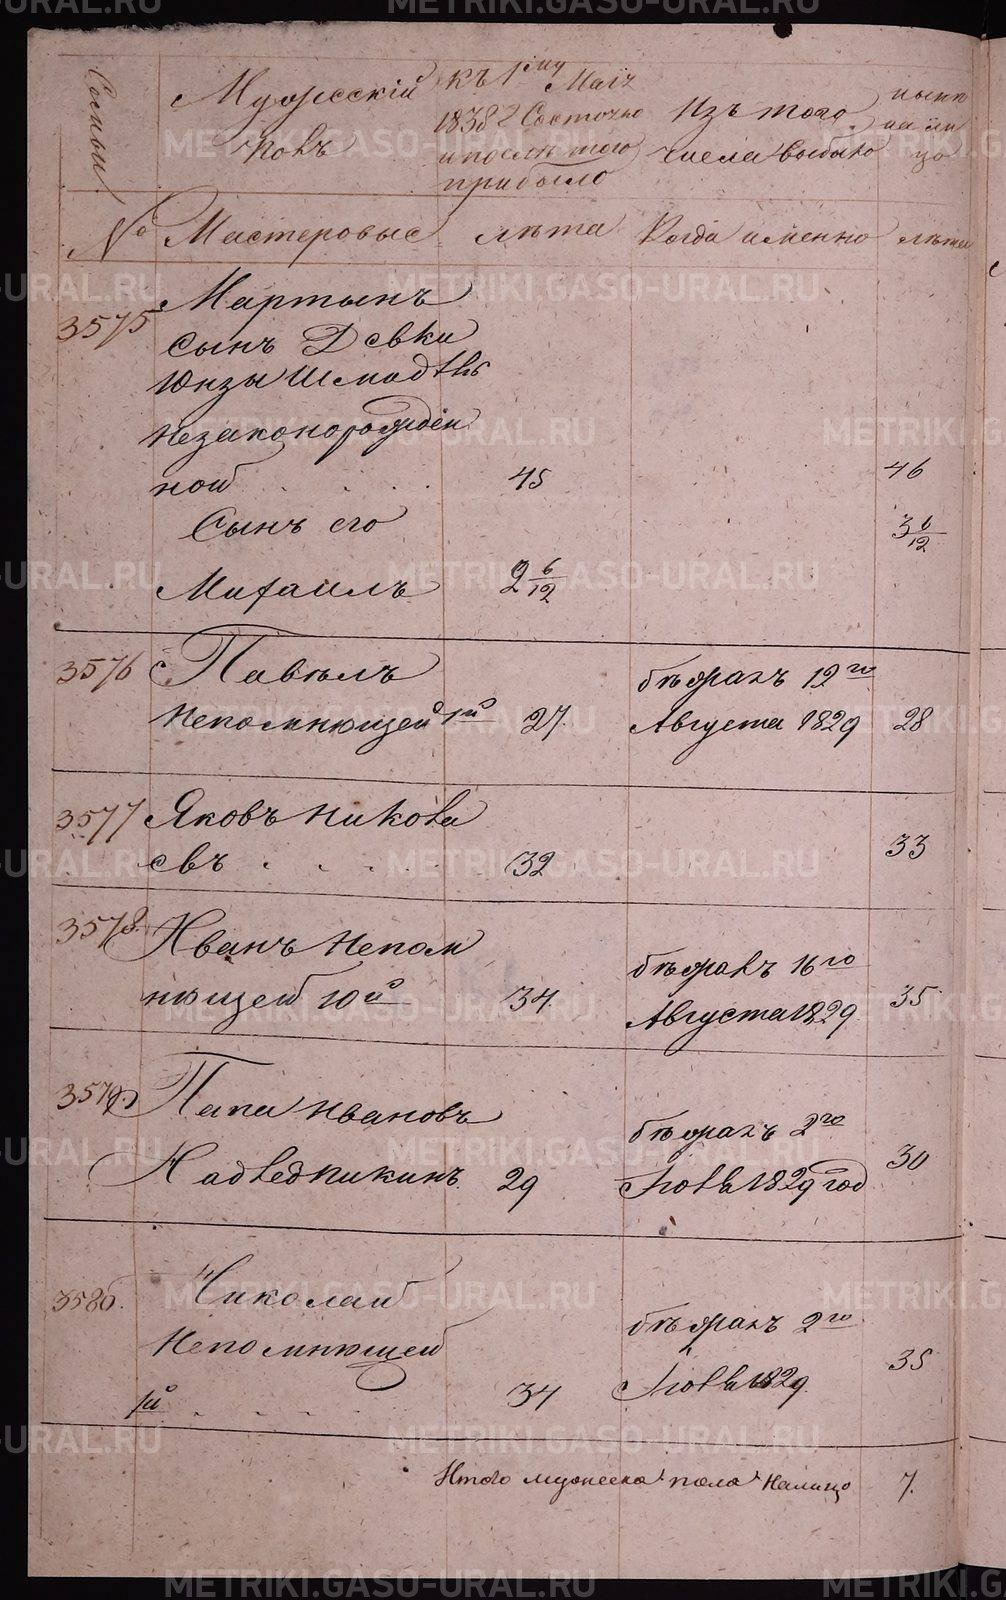 Семьи
Мужескій
полъ
къ 1му Маія
1838 Состояло
и послѣ того
прибыло
Изъ того
числа выбыло
нынѣ
на ли
цо
№
Мастеровые
лѣта
Когда именно
лѣта
3575
Мартынъ
сынъ Девки
незаконорожден
ной
45
46
Сынъ его
Михаилъ
2 6/12
3 6/12
3576
Павелъ
Непомнющей 1й
27.
бѣжалъ 12го
Августа 1829
28
3577
Яковъ Никола
евъ
32
33
3578.
Иванъ Непом
нющей 10й
34
бѣжалъ 16го
Августа 1829
35
3579
Папа Ивановъ
29
бѣжалъ 2го
Іюля 1829 год
30
3580.
Николай
Непомнющей
1й
34
бѣжалъ 2го
Іюля 1829.
35
Итого мужеска пола налицо
7.
METRIKI.GASO-URAL.RU